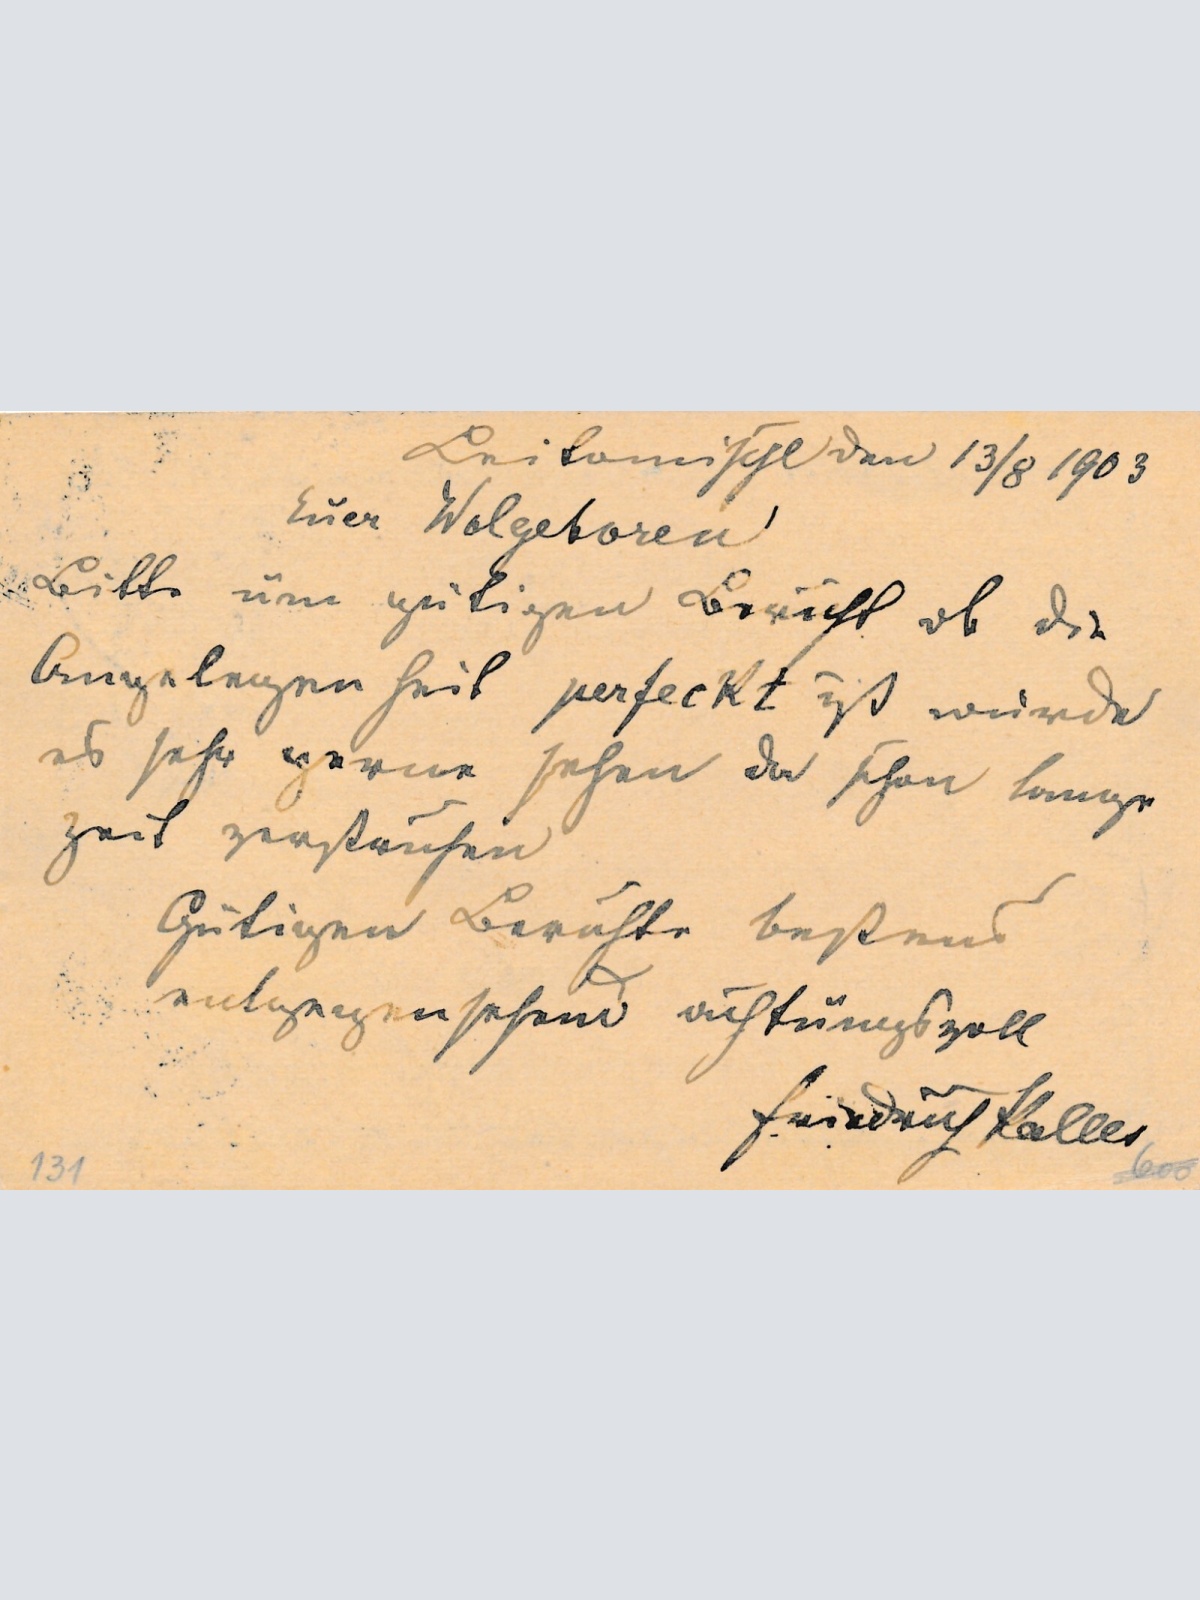 Leitomischl den 13/8 1903
Euer Wolgeboren!
Bitte um gütigen Bericht ob die
Angelegenheit perfeckt ist würde
es sehr gerne sehen da schon lange
Zeit verstrichen
Gütigen Berichte bestens
entgegensehend achtungsvoll
Friedrich Kalles
131
600